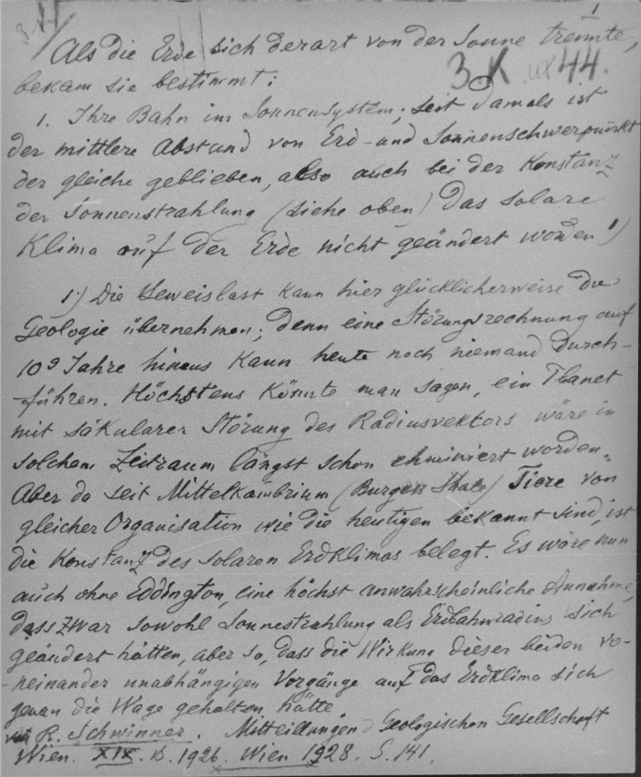 1
Als die Erde sich derart von der Sonne trennte,
bekam sie bestimmt:
3 K 44.
1. Ihre Bahn im Sonnensystem; seit damals ist
der mittlere Abstand von Erd- und Sonnenschwerpunkt
der gleiche geblieben, also auch bei der Konstanz
der Sonnenstrahlung (siehe oben) das solare
Klima auf der Erde nicht geändert worden 1)
1) Die Beweislast kann hier glücklicherweise die
Geologie übernehmen; denn eine Störungsrechnung auf
10⁹ Jahre hinaus kann heute noch niemand durch-
-führen. Höchstens könnte man sagen, ein Planet
mit säkularer Störung des Radiusvektors wäre in
solchem Zeitraum längst schon eliminiert worden.
Aber da seit Mittelkambrium (Burgess Shale) Tiere von
gleicher Organisation wie die heutigen bekannt sind, ist
die Konstanz des solaren Erdklimas belegt. Es wäre nun
auch ohne Eddington, eine höchst unwahrscheinliche Annahme,
dass zwar sowohl Sonnestrahlung als Erdbahnradius sich
geändert hätten, aber so, dass die Wirkung dieser beiden vo-
-neinander unabhängigen Vorgänge auf das Erdklima sich
genau die Wage gehalten hätte.
R. Schwinner. Mitteilungen d Geologischen Gesellschaft
Wien. XIX. B. 1926. Wien 1928. S. 141.